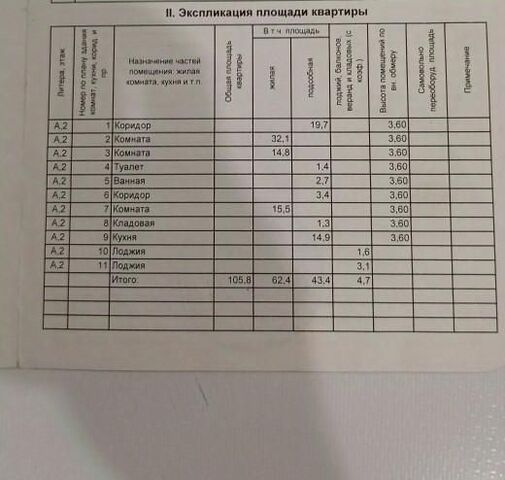 II. Экспликация площади квартиры
Литера, этаж
Номер по плану здания комнат, кухни, корид. и пр
Назначение частей помещения: жилая комната, кухня и т.п.
Общая площадь квартиры
В т ч площадь
жилая
подсобная
лоджий, балконов, веранд и кладовых (с коэф.)
Высота помещений по вн. обмеру
Самовольно переоборуд. площадь
Примечание
А,2 1 Коридор 19,7 3,60
А,2 2 Комната 32,1 3,60
А,2 3 Комната 14,8 3,60
А,2 4 Туалет 1,4 3,60
А,2 5 Ванная 2,7 3,60
А,2 6 Коридор 3,4 3,60
А,2 7 Комната 15,5 3,60
А,2 8 Кладовая 1,3 3,60
А,2 9 Кухня 14,9 3,60
А,2 10 Лоджия 1,6
А,2 11 Лоджия 3,1
Итого: 105,8 62,4 43,4 4,7